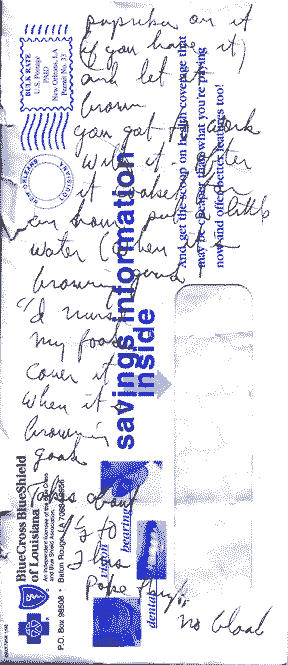 paprika on it
(if you have it)
and let it
brown
you got to work
with it - after
it bakes for
an hour put a little
water (when it's
browning good
I'd nurse
my food
cover it
when it's
browning
good
Takes about
to
2 hrs
Poke thighs
no blood
BULK RATE
U.S. Postage
PAID
New Orleans, LA
Permit No. 33
And get the scoop on health coverage that
may be cheaper than what you're paying
now and offer better features too!
savings information
inside
BlueCross BlueShield
of Louisiana
An Independent Licensee of the Blue Cross
and Blue Shield Association.
P.O. Box 98508 • Baton Rouge, LA 70884-9656
vision
hearing
dental